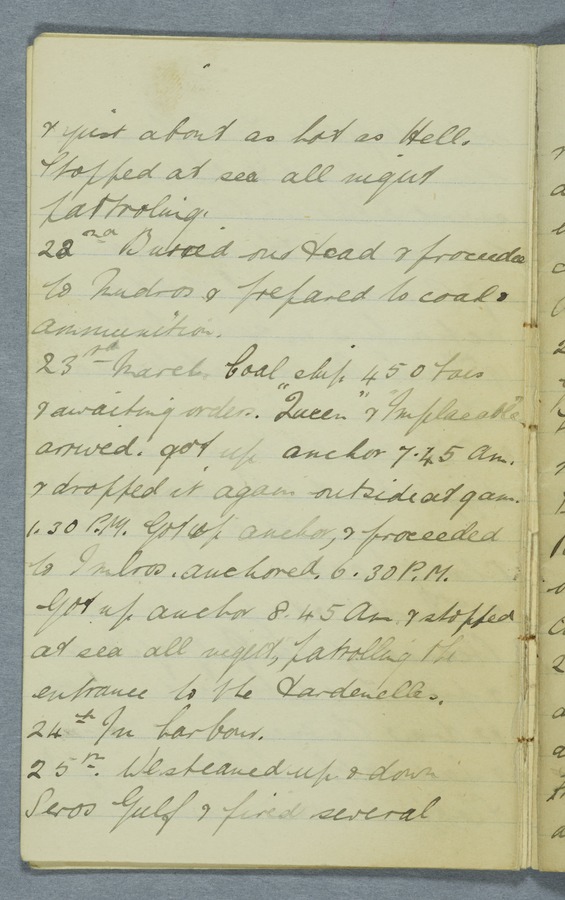 & just about as hot as Hell.
Stopped at sea all night
patroling.
22nd Buried our dead & proceeded
to Mudros & prepared to coal &
ammunition.
23rd March. Coal ship 450 tons
& awaiting orders. "Queen" & "Implacable"
arrived. got up anchor 7.45 Am.
& dropped it again outside at 9am.
1.30 P.M. Got up anchor, & proceeded
to Imbros. anchored. 6.30 P.M.
Got up anchor 8.45 Am & stopped
at sea all night, patrolling the
entrance to the Dardenelles.
24th In harbour.
25th. We steamed up & down
Seros Gulf & fired several